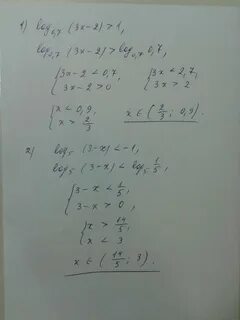 1) log₀,₇ (3x-2) > 1,
log₀,₇ (3x-2) > log₀,₇ 0,7,
{ 3x-2 < 0,7, { 3x < 2,7,
3x-2 > 0, 3x > 2
{ x < 0,9, x ∈ (2/3; 0,9).
x > 2/3
2) log₅ (3-x) < -1,
log₅ (3-x) < log₅ 1/5,
{ 3-x < 1/5,
3-x > 0,
{ x > 14/5,
x < 3
x ∈ (14/5; 3).